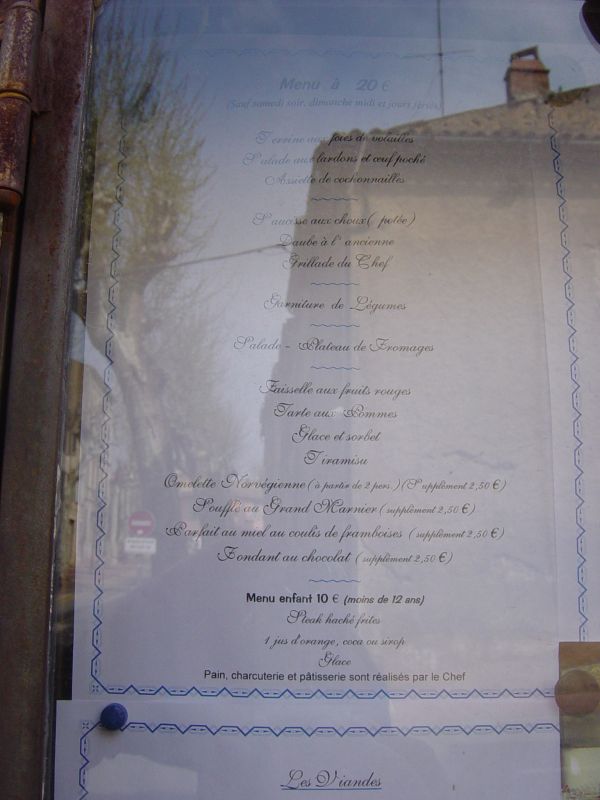 Menu à 20 €
(Sauf samedi soir, dimanche midi et jours fériés)
Terrine aux foies de volailles
Salade aux lardons et œuf poché
Assiette de cochonnailles
Saucisse aux choux ( potée)
Daube à l' ancienne
Grillade du Chef
Garniture de Légumes
Salade - Plateau de Fromages
Faisselle aux fruits rouges
Tarte aux Pommes
Glace et sorbet
Tiramisu
Omelette Norvégienne (à partir de 2 pers.) (Supplément 2,50 €)
Soufflé au Grand Marnier (supplément 2,50 €)
Parfait au miel au coulis de framboises (supplément 2,50 €)
Fondant au chocolat (supplément 2,50 €)
Menu enfant 10 € (moins de 12 ans)
Steak haché frites
1 jus d'orange, coca ou sirop
Glace
Pain, charcuterie et pâtisserie sont réalisés par le Chef
Les Viandes